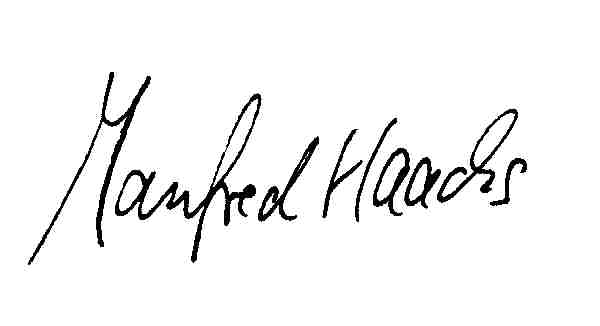 Manfred Haacks